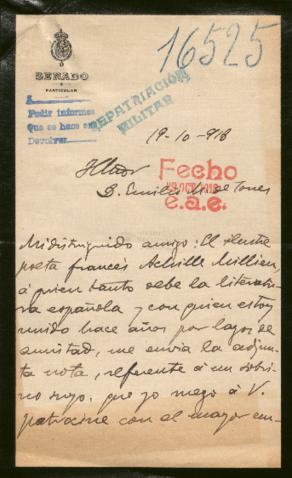 16525
SENADO
PARTICULAR
A
Pedir informes
Que se hace en
Devolver
REPATRIACIÓN
MILITAR
19-10-918
Fecho
OCT 1918
e.a.e.
D. Emilio de Torres
Mi distinguido amigo: El ilustre
poeta francés Achille Millien,
á quien tanto debe la literatu-
ra española y con quien estoy
unido hace años por lazos de
amistad, me envia la adjun-
ta nota, referente á un sobri-
no suyo, que yo ruego á V.
patrocine con el mayor em-